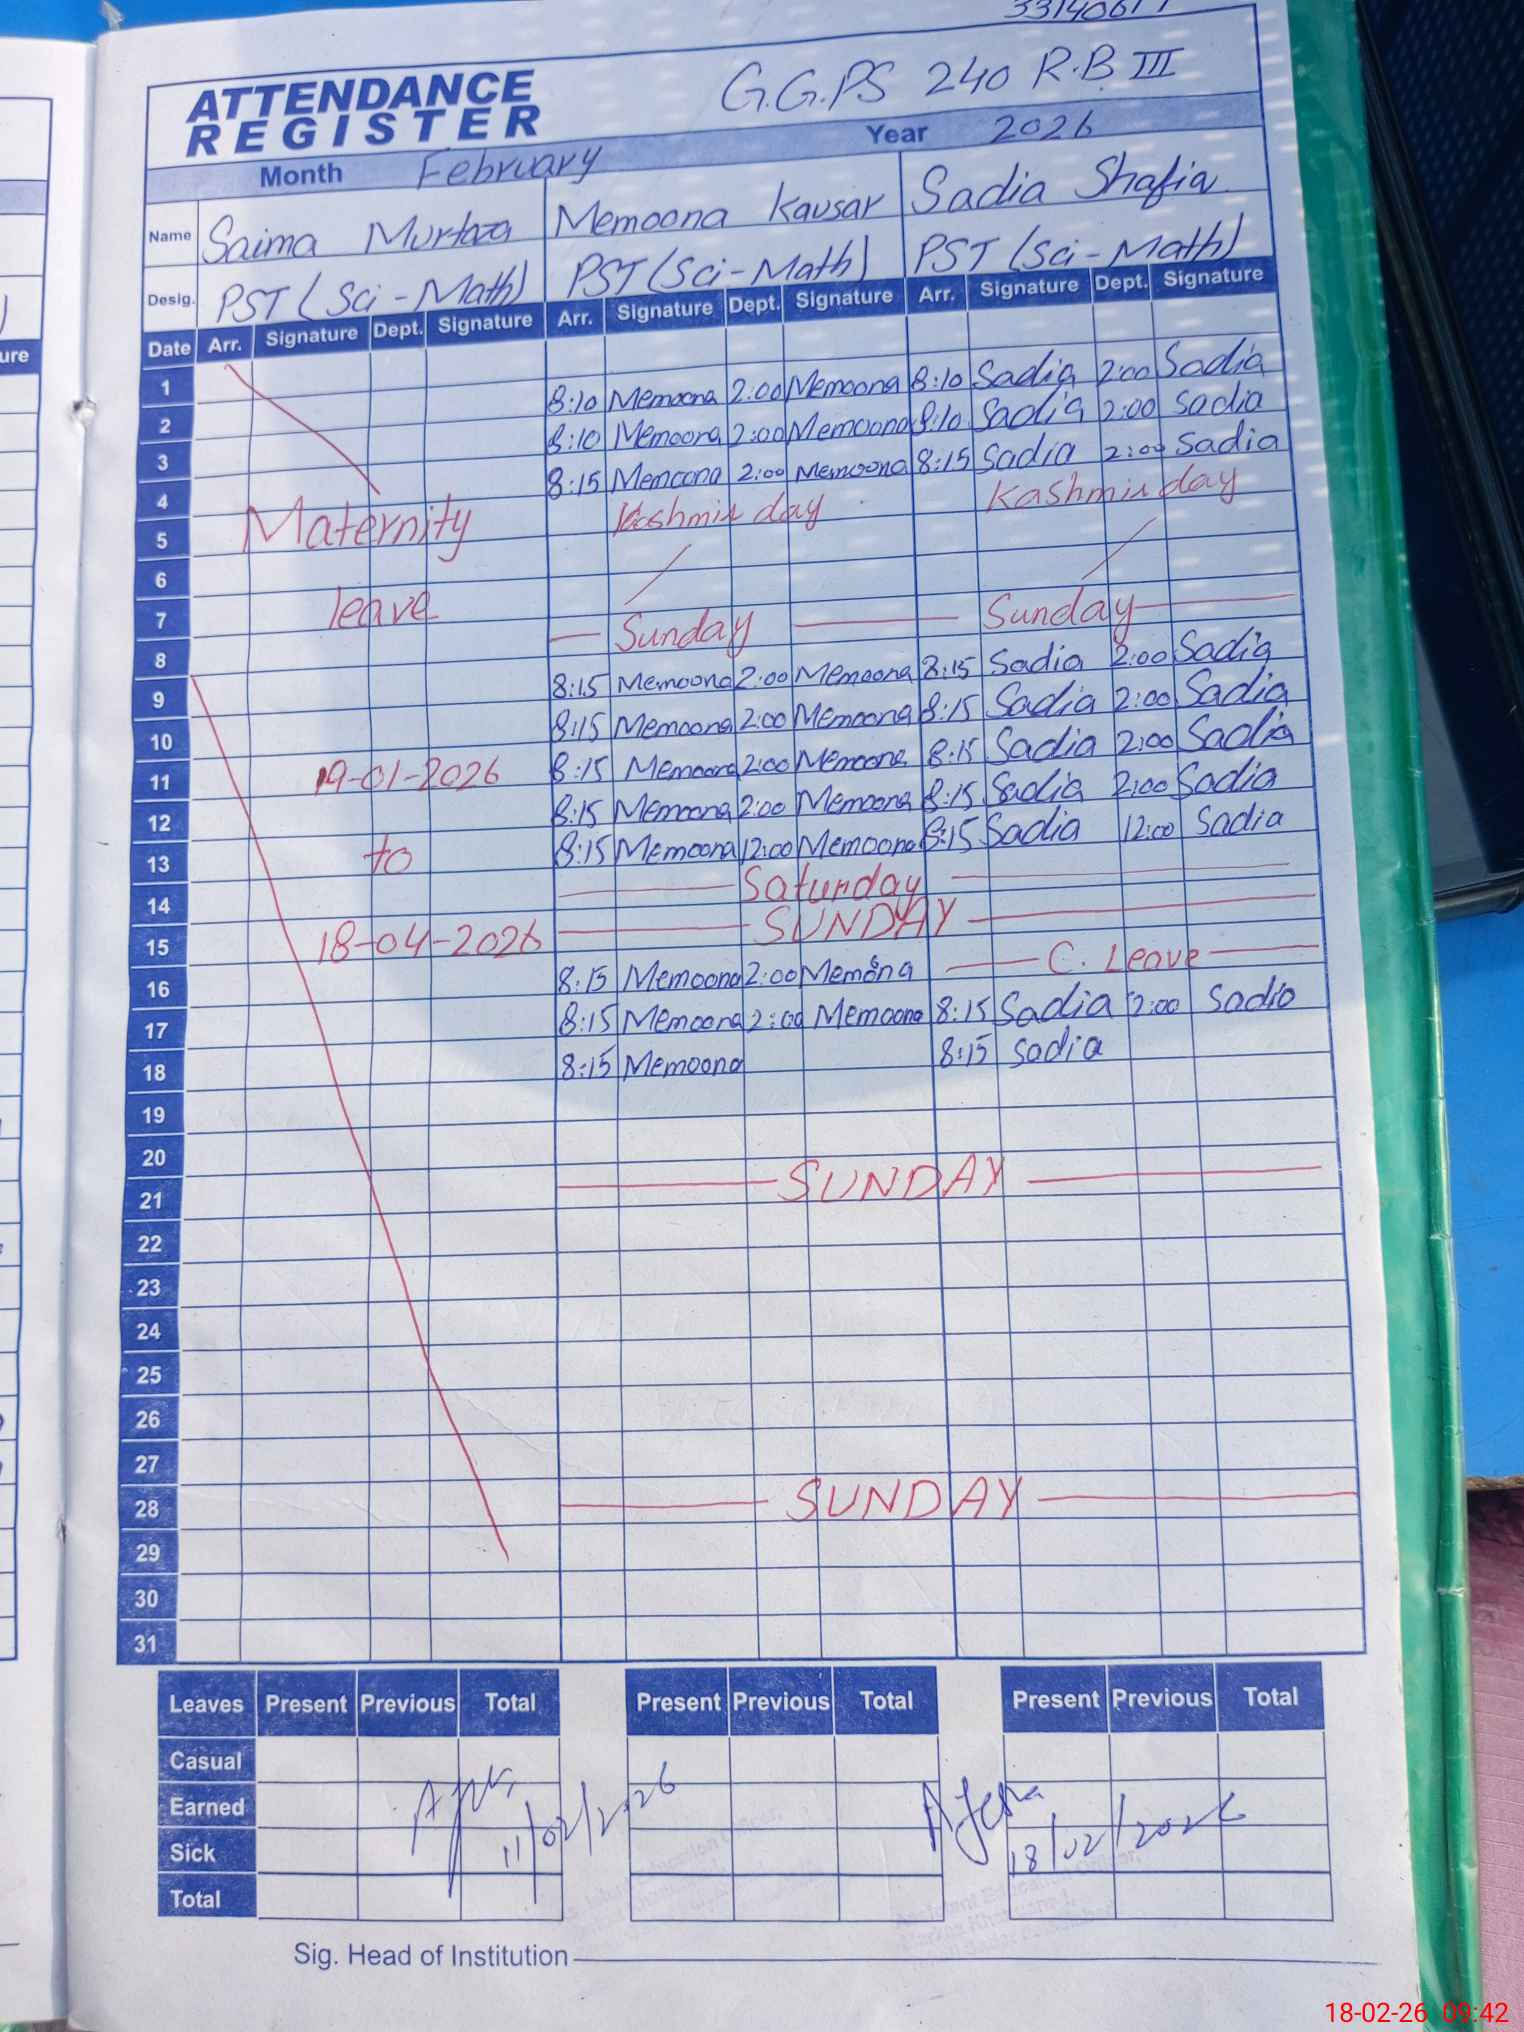 3314061
ATTENDANCE
REGISTER
G.G.PS 240 R.B III
Month February Year 2026
Name Saima Murtaza Memoona Kausar Sadia Shafia
Desig. PST (Sci-Math) PST (Sci-Math) PST (Sci-Math)
Date Arr. Signature Dept. Signature Arr. Signature Dept. Signature Arr. Signature Dept. Signature
1
2 8:10 Memoona 2:00 Memoona 8:10 Sadia 2:00 Sadia
3 8:10 Memoona 2:00 Memoona 8:10 Sadia 2:00 Sadia
4 8:15 Memoona 2:00 Memoona 8:15 Sadia 2:00 Sadia
5 Maternity Kashmir day Kashmir day
6
7 leave
8 Sunday Sunday
9 8:15 Memoona 2:00 Memoona 8:15 Sadia 2:00 Sadia
10 8:15 Memoona 2:00 Memoona 8:15 Sadia 2:00 Sadia
11 19-01-2026 8:15 Memoona 2:00 Memoona 8:15 Sadia 2:00 Sadia
12 8:15 Memoona 2:00 Memoona 8:15 Sadia 2:00 Sadia
13 to 8:15 Memoona 12:00 Memoona 8:15 Sadia 12:00 Sadia
14 Saturday
15 18-04-2026 SUNDAY
16 8:15 Memoona 2:00 Memona C. Leave
17 8:15 Memoona 2:00 Memoona 8:15 Sadia 2:00 Sadia
18 8:15 Memoona 8:15 Sadia
19
20
21 SUNDAY
22
23
24
25
26
27
28 SUNDAY
29
30
31
Leaves Present Previous Total Present Previous Total Present Previous Total
Casual
Earned
Sick
Total
11/02/2026
18/02/2026
Sig. Head of Institution
18-02-26 09:42